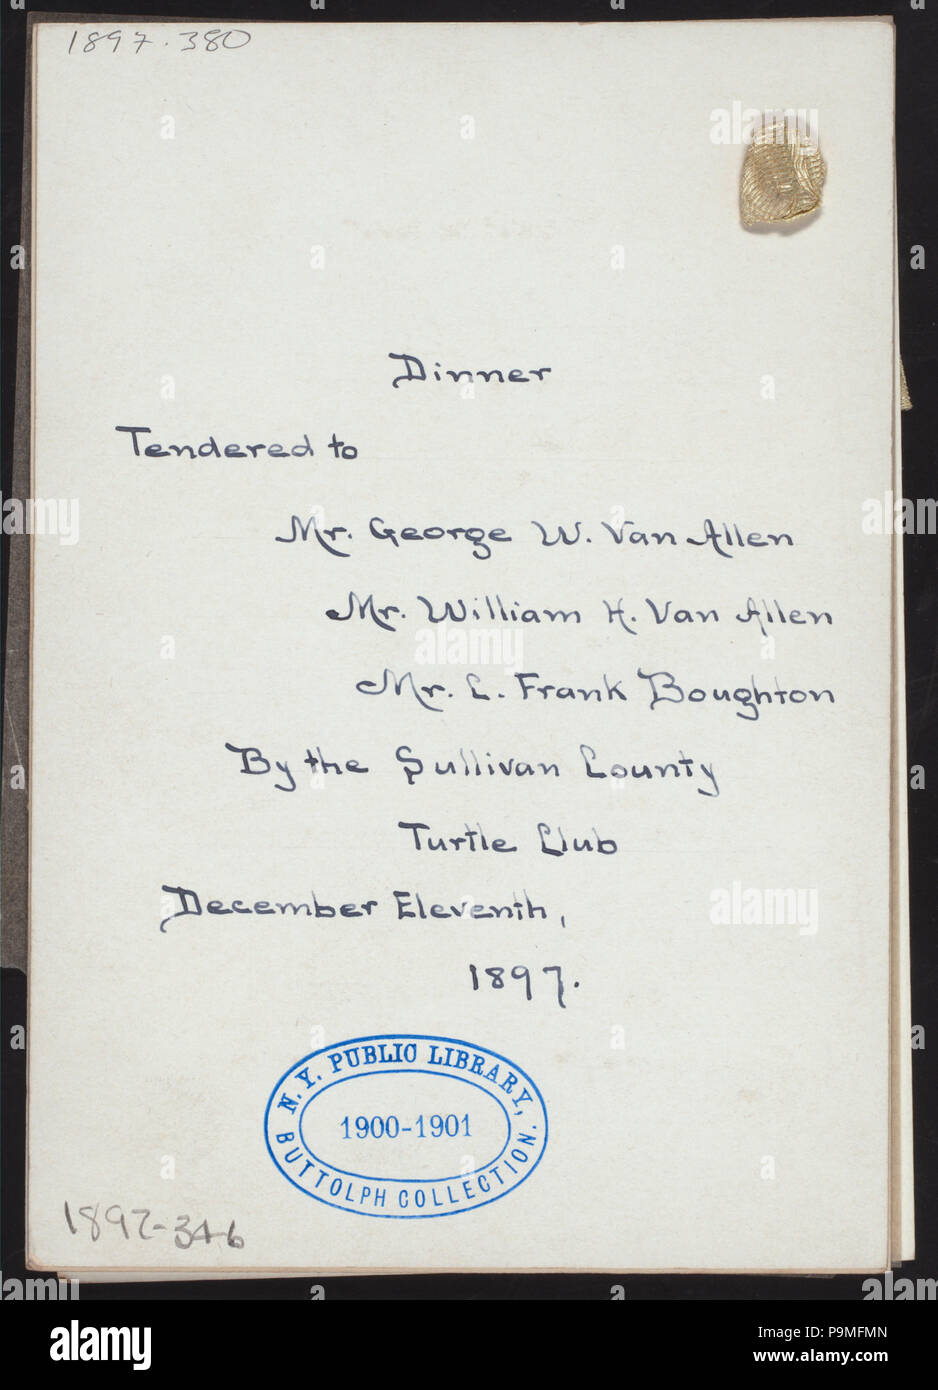 1897.380
Dinner
Tendered to
Mr. George W. Van Allen
Mr. William H. Van Allen
Mr. L. Frank Boughton
By the Sullivan County
Turtle Club
December Eleventh,
1897.
N. Y. PUBLIC LIBRARY,
1900-1901
BUTTOLPH COLLECTION.
1897-346
alamy
alamy
Image ID: P9MFMN
www.alamy.com